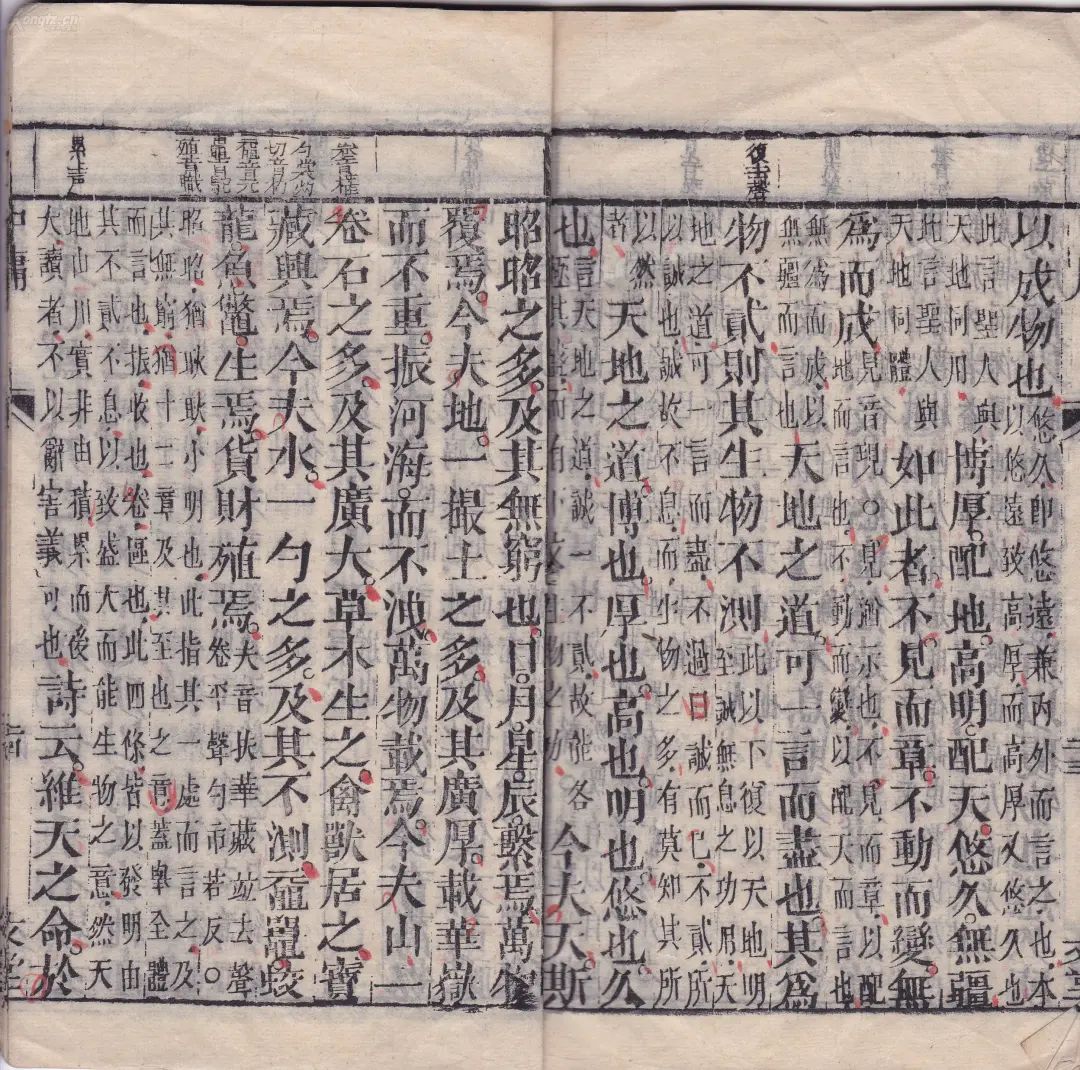 復去聲
以成物也。悠久即悠遠兼內外而言之也本
以悠遠致高厚而高厚又悠久也
此言聖人與
天地同用
博厚。配地。高明。配天。悠久。無疆。
此言聖人與
天地同體
如此者。不見而章。不動而變。無
為而成。見音現○見猶示也不見而章以配
地而言也不動而變以配天而言也
無為而成以
無疆而言也
天地之道。可一言而盡也。其為
物不貳。則其生物不測。此以下復以天地明
至誠無息之功用天
地之道可一言而盡不過曰誠而已不貳所
以誠也誠故不息而生物之多有莫知其所
以然
者
天地之道。博也。厚也。高也。明也。悠也。久
也。言天地之道誠一不貳故能各
極其盛而有下文生物之功
今夫天斯
卷音權
黿音元
殖音職
昭昭之多。及其無窮也。日。月。星。辰。繫焉。萬物
覆焉。今夫地。一撮土之多。及其廣厚。載華嶽
而不重。振河海。而不洩。萬物載焉。今夫山一
卷石之多。及其廣大。草木生之。禽獸居之。寶
藏興焉。今夫水。一勺之多。及其不測。黿鼉。蛟
龍。魚鼈。生焉。貨財殖焉。夫音扶華藏並去聲
卷平聲勺市若反○
昭昭猶耿耿小明也此指其一處而言之及
其無窮猶十二章及其至也之意蓋舉全體
而言也振收也卷區也此四條皆以發明由
其不貳不息以致盛大而能生物之意然天
地山川實非由積累而後
大讀者不以辭害義可也
詩云。維天之命。於
中庸